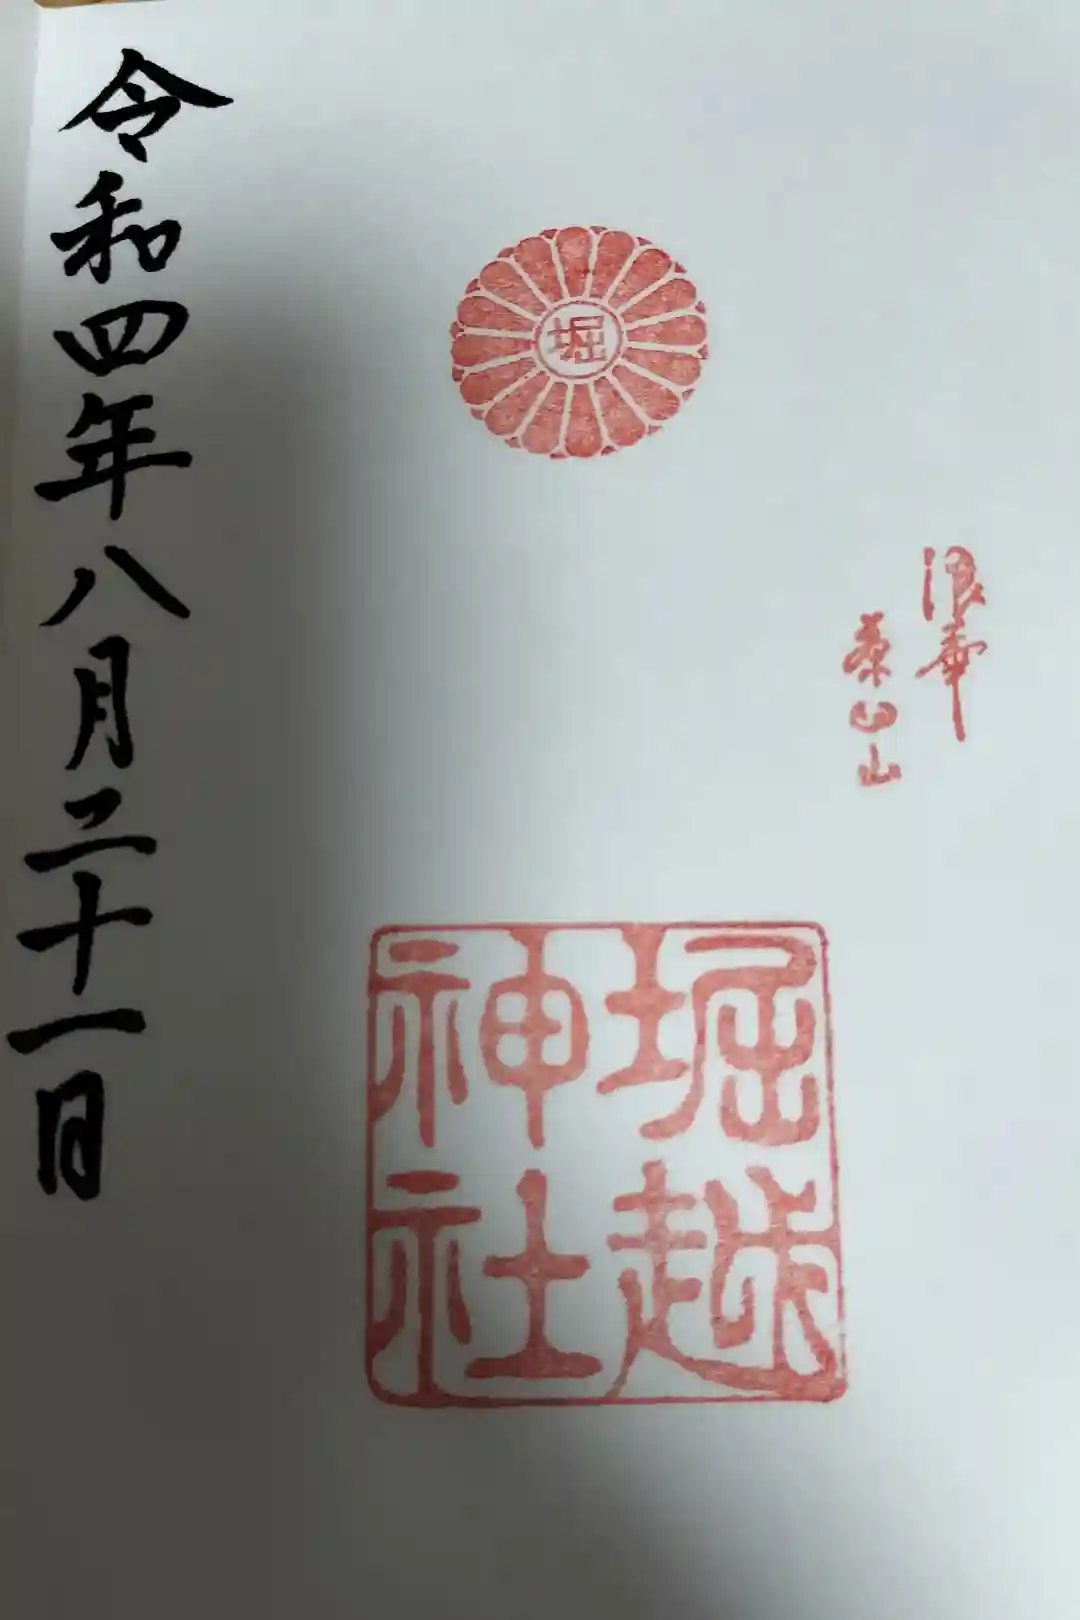 堀
浪華
茶臼山
堀越
神社
令和四年八月二十一日